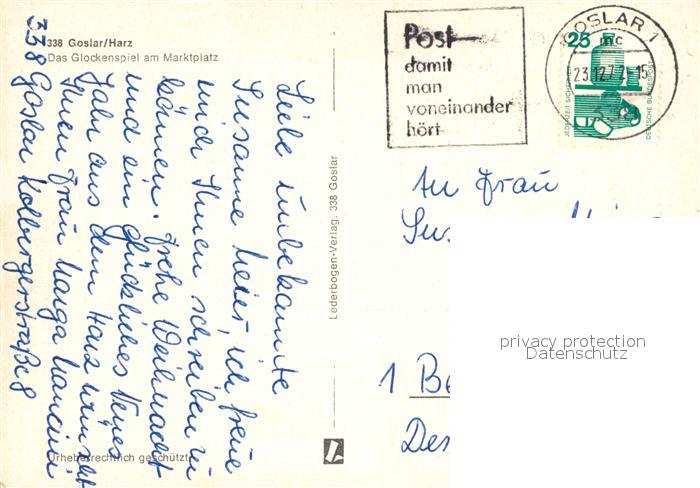 338 Goslar/Harz
Das Glockenspiel am Marktplatz
Liebe unbekannte
Susanne Meier, ich freue
mich Ihnen schreiben zu
können. Frohe Weihnacht
und ein glückliches Neues
Jahr aus dem Harz wünscht
Ihnen Frau Marga Mancini
338 Goslar Kolbergerstraße 8
Urheberrechtlich geschützt
Lederbogen-Verlag, 338 Goslar
Post
damit
man
voneinander
hört
GOSLAR 1
mc
23.12.72-15
25
JEDERZEIT SICHERHEIT
DEUTSCHE BUNDESPOST
An Frau
Sus
1 Be
Des
privacy protection
Datenschutz